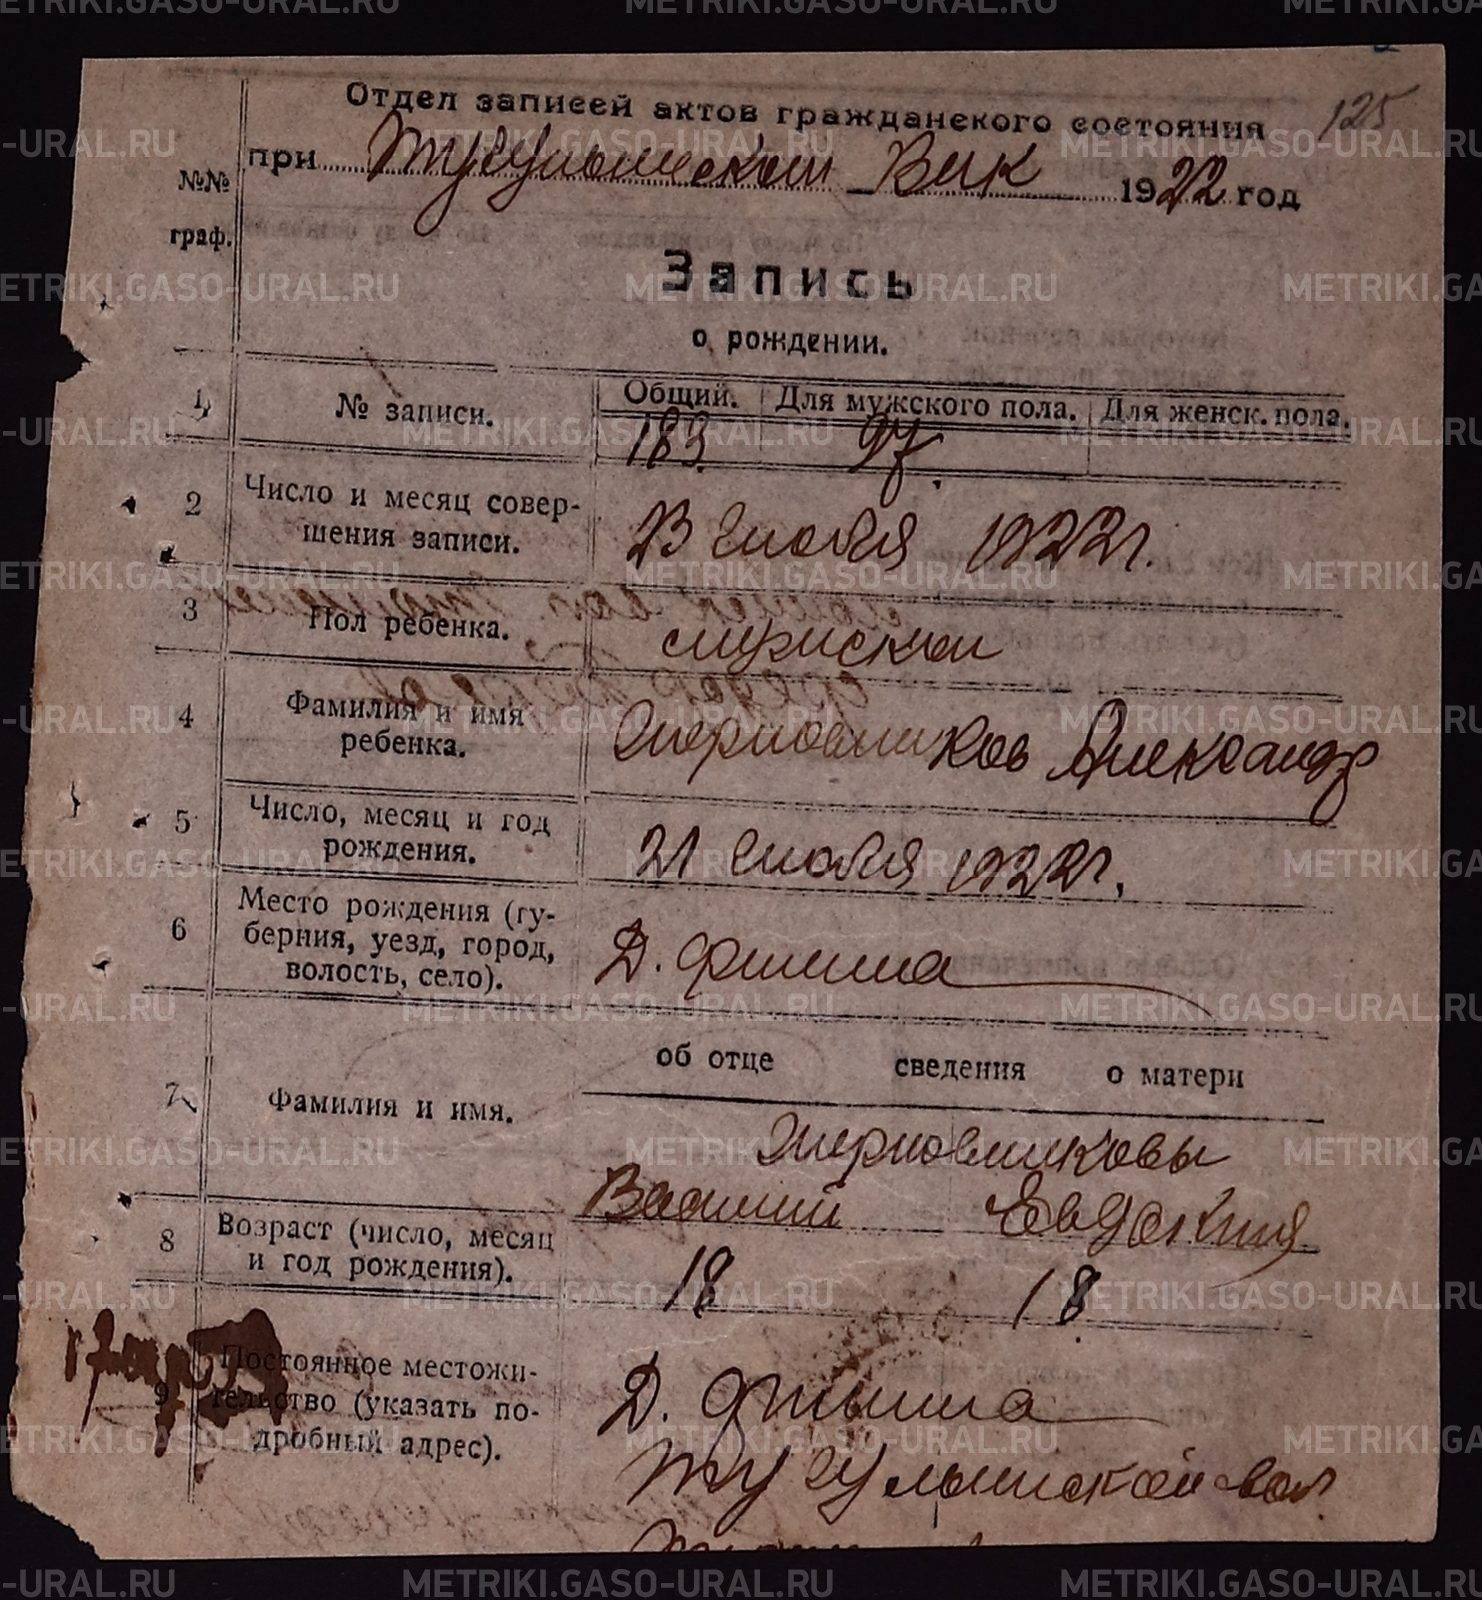 125
Отдел записей актов гражданского состояния
при Тугулымском Вик 1922 год
№№ граф.
Запись
о рождении.
1 № записи. Общий. Для мужского пола. Для женск. пола.
183. 97.
2 Число и месяц совер-
шения записи.
23 Июля 1922 г.
3 Пол ребенка. мужской
4 Фамилия и имя
ребенка.
Александр
5 Число, месяц и год
рождения.
21 Июля 1922 г.
6 Место рождения (гу-
берния, уезд, город,
волость, село).
Д.
об отце сведения о матери
7 Фамилия и имя.
Василий Евдокия
8 Возраст (число, месяц
и год рождения).
18 18
9 Постоянное местожи-
тельство (указать по-
дробный адрес).
Д.
Тугулымской вол
METRIKI.GASO-URAL.RU